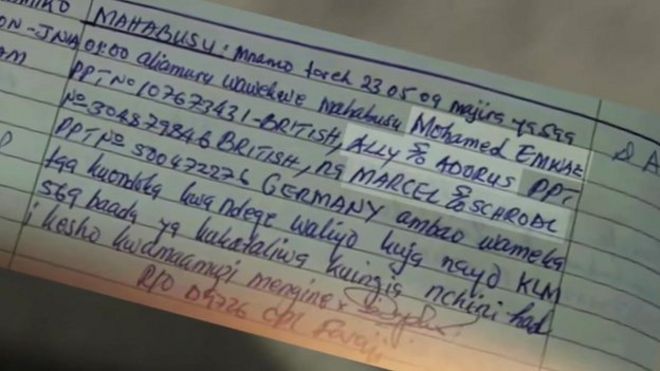 ON-JNIA
AM
MAHABUSU: Mnamo tareh 23.05.09 majira ya saa
01:00 aliamuru wawekwe mahabusu Mohamed EMWAZ
PPT No 107673431-BRITISH, ALLY S/O ADORUS PPT
No. 304879846 BRITISH, na MARCEL S/O SCHRODL
PPT No 500472276 GERMANY ambao wameka
taa kuondoka kwa ndege waliyo kuja nayo KLM
569 baada ya kukataliwa kuingia nchini had
i kesho kwa maamuzi mengine
R/O D9726 Cpl Faraji